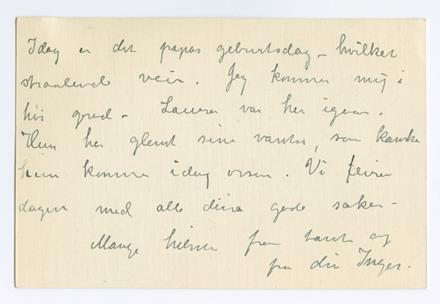 Idag er det papas geburtsdag – hvilket
straalende veir. Jeg kommer mig i
høi grad – Laura var her igaar.
Hun har glemt sine vanter, som kanske
hun kommer idag
Vi feirer
dagen med alle dine gode saker –
Mange hilsner fra tante og
fra din Inger.